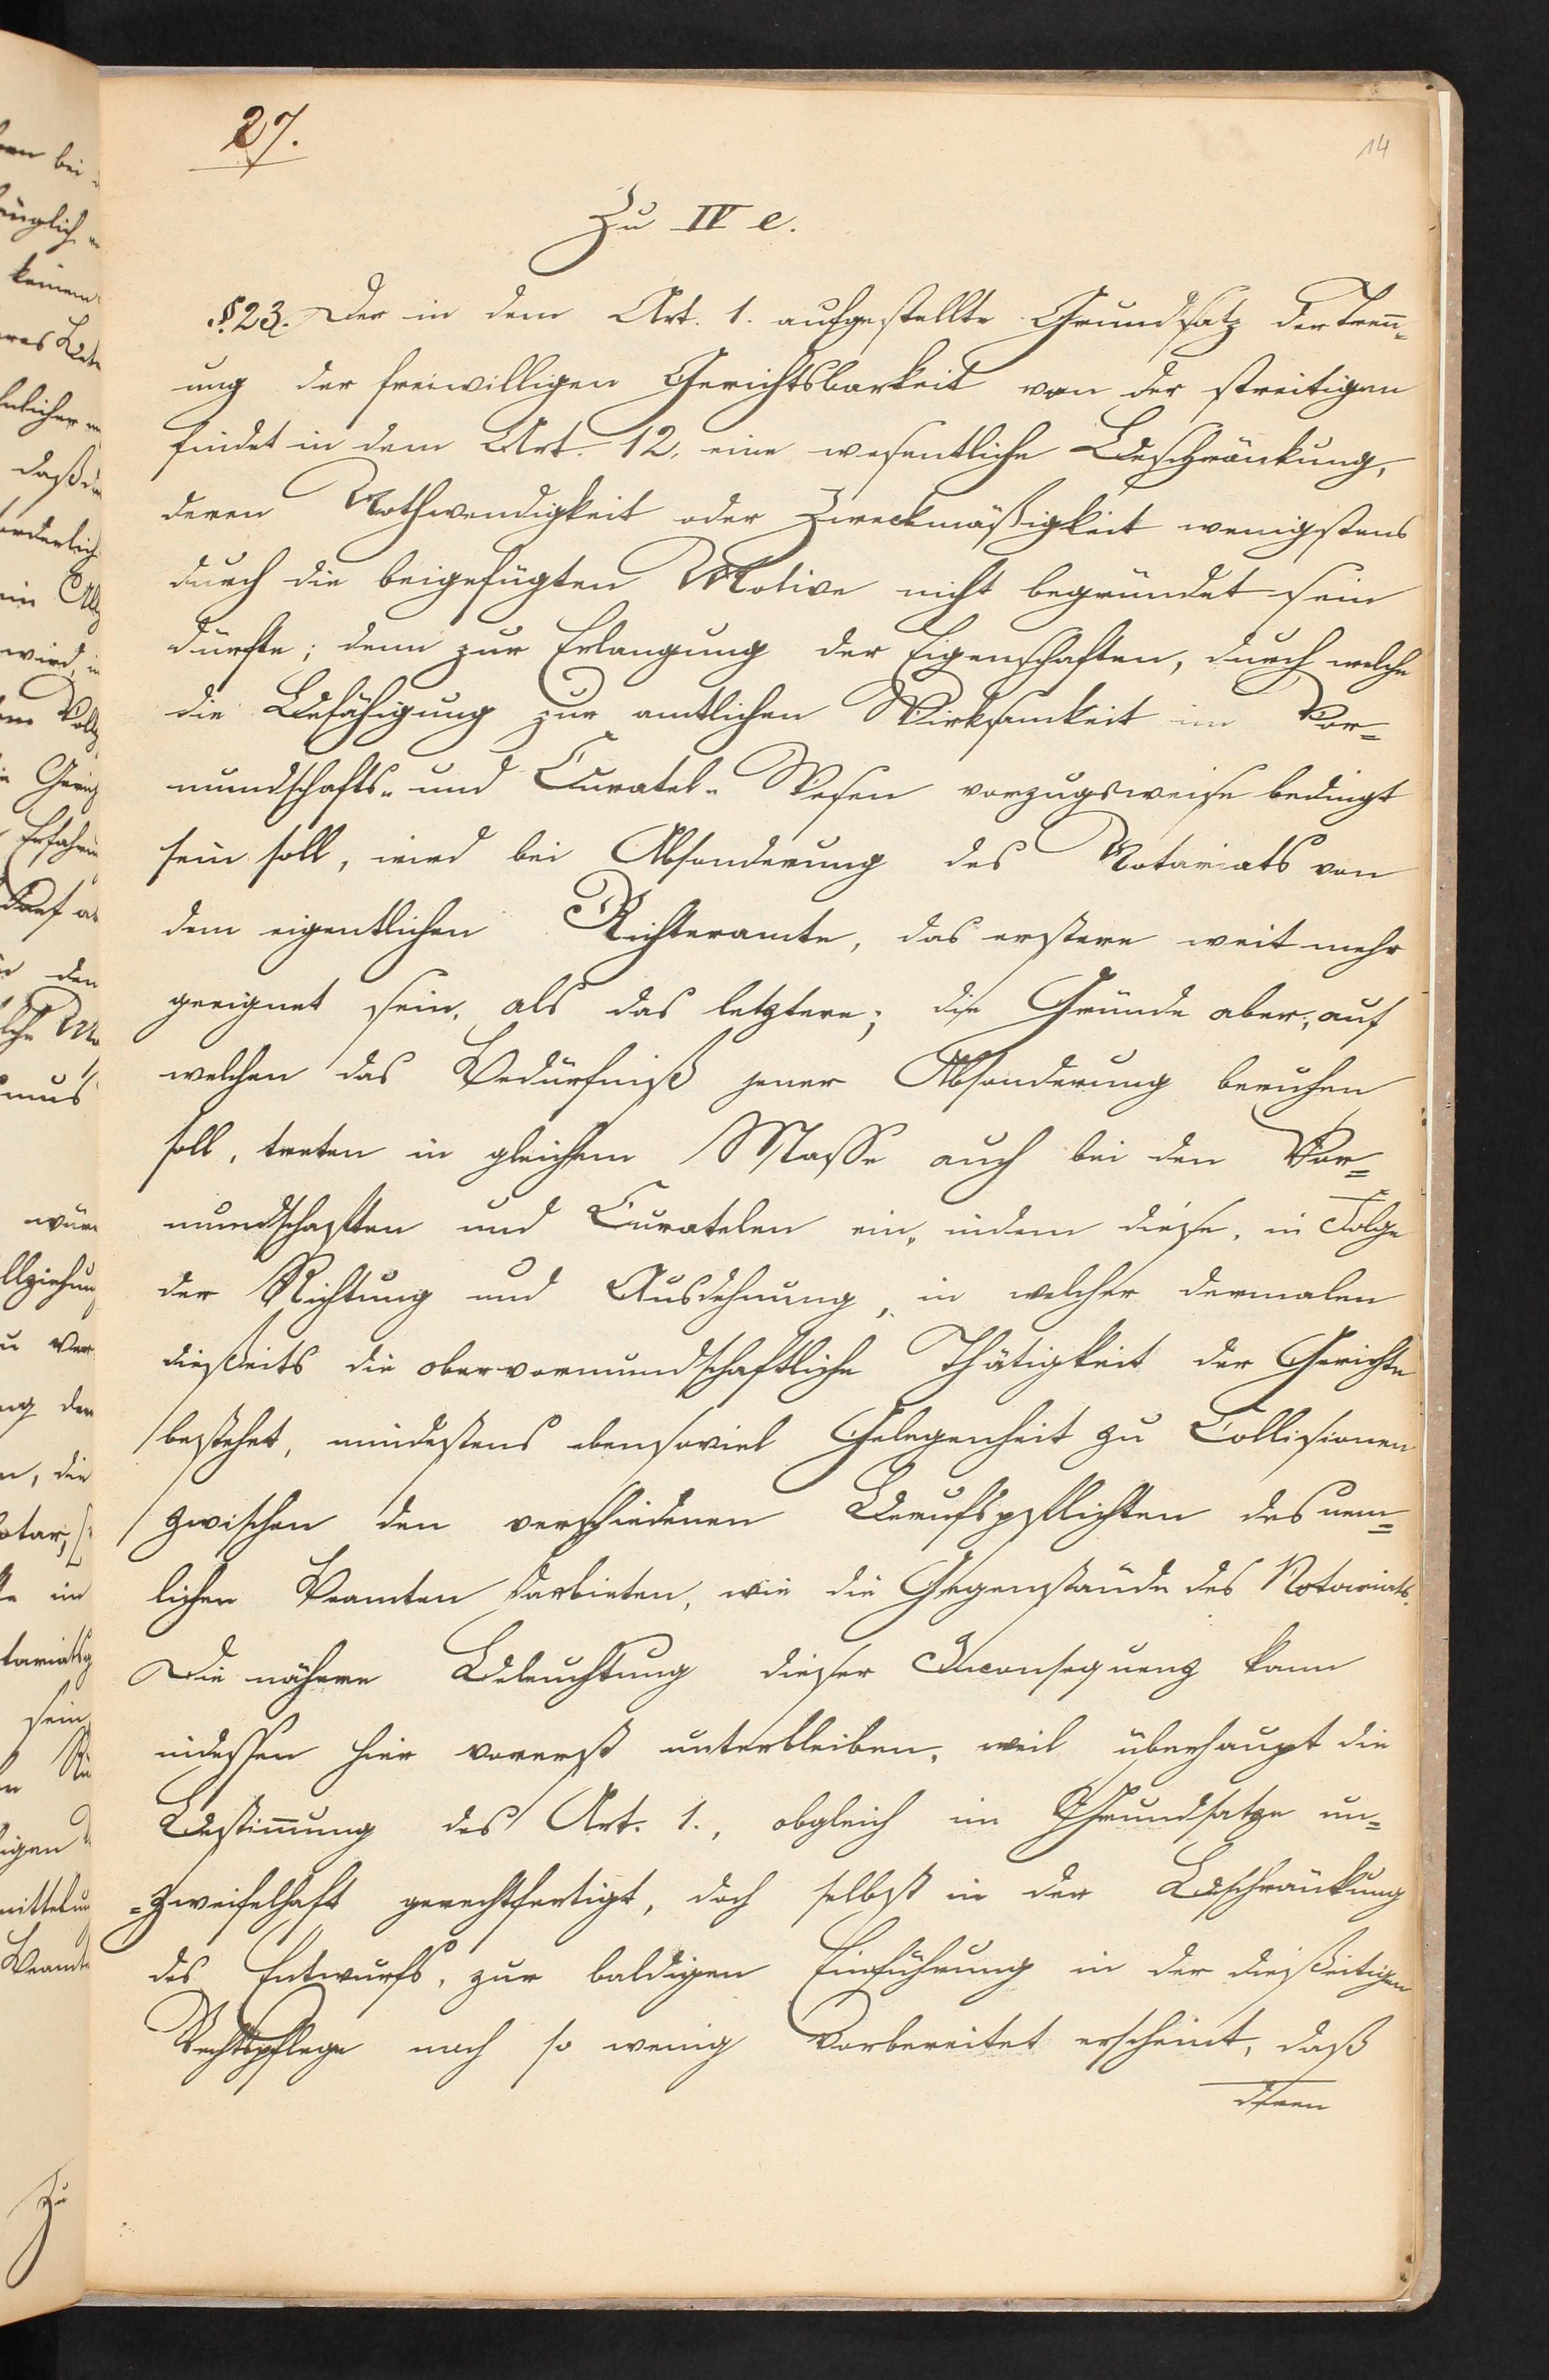 27.
14
Zu IV e.
§. 23. Der in dem Art. 1. aufgestellte Grundsatz der Treñ-
ung der freiwilligen Gerichtsbarkeit von der streitigen
findet in dem Art. 12, eine wesentliche Beschränkung,
deren Nothwendigkeit oder Zweckmäßigkeit wenigstens
durch die beigefügten Motive nicht begründet sein
dürfte; denn zur Erlangung der Eigenschaften, durch welche
die Befähigung zur amtlichen Wirksamkeit im Vor-
mundschafts- und Curatel-Wesen vorzugsweise bedingt
sein soll, wird bei Absonderung des Notariats von
dem eigentlichen Richteramte, das erstere weit mehr
geeignet sein, als das letztere; die Gründe aber, auf
welchen das Bedürfniß jener Absonderung beruhen
soll, treten in gleichem Masse auch bei den Vor-
mundschaften und Curatelen ein, indem diese, in Folge
der Richtung und Ausdehnung, in welcher dermalen
dießeits die obervormundschaftliche Thätigkeit der Gerichte
bestehet, mindestens ebensoviel Gelegenheit zu Collisionen
zwischen den verschiedenen Berufspflichten des nem-
lichen Beamten darbieten, wie die Gegenstände des Notariats.
Die nähere Beleuchtung dieser Inconsequenz kann
indessen hier vorerst unterbleiben, weil überhaupt die
Bestim̄ung des Art. 1., obgleich im Grundsatze un-
=zweifelhaft gerechtfertigt, doch selbst in der Beschränkung
des Entwurfs, zur baldigen Einführung in der dießeitigen
Rechtspflege noch so wenig vorbereitet erscheint, daß
deren